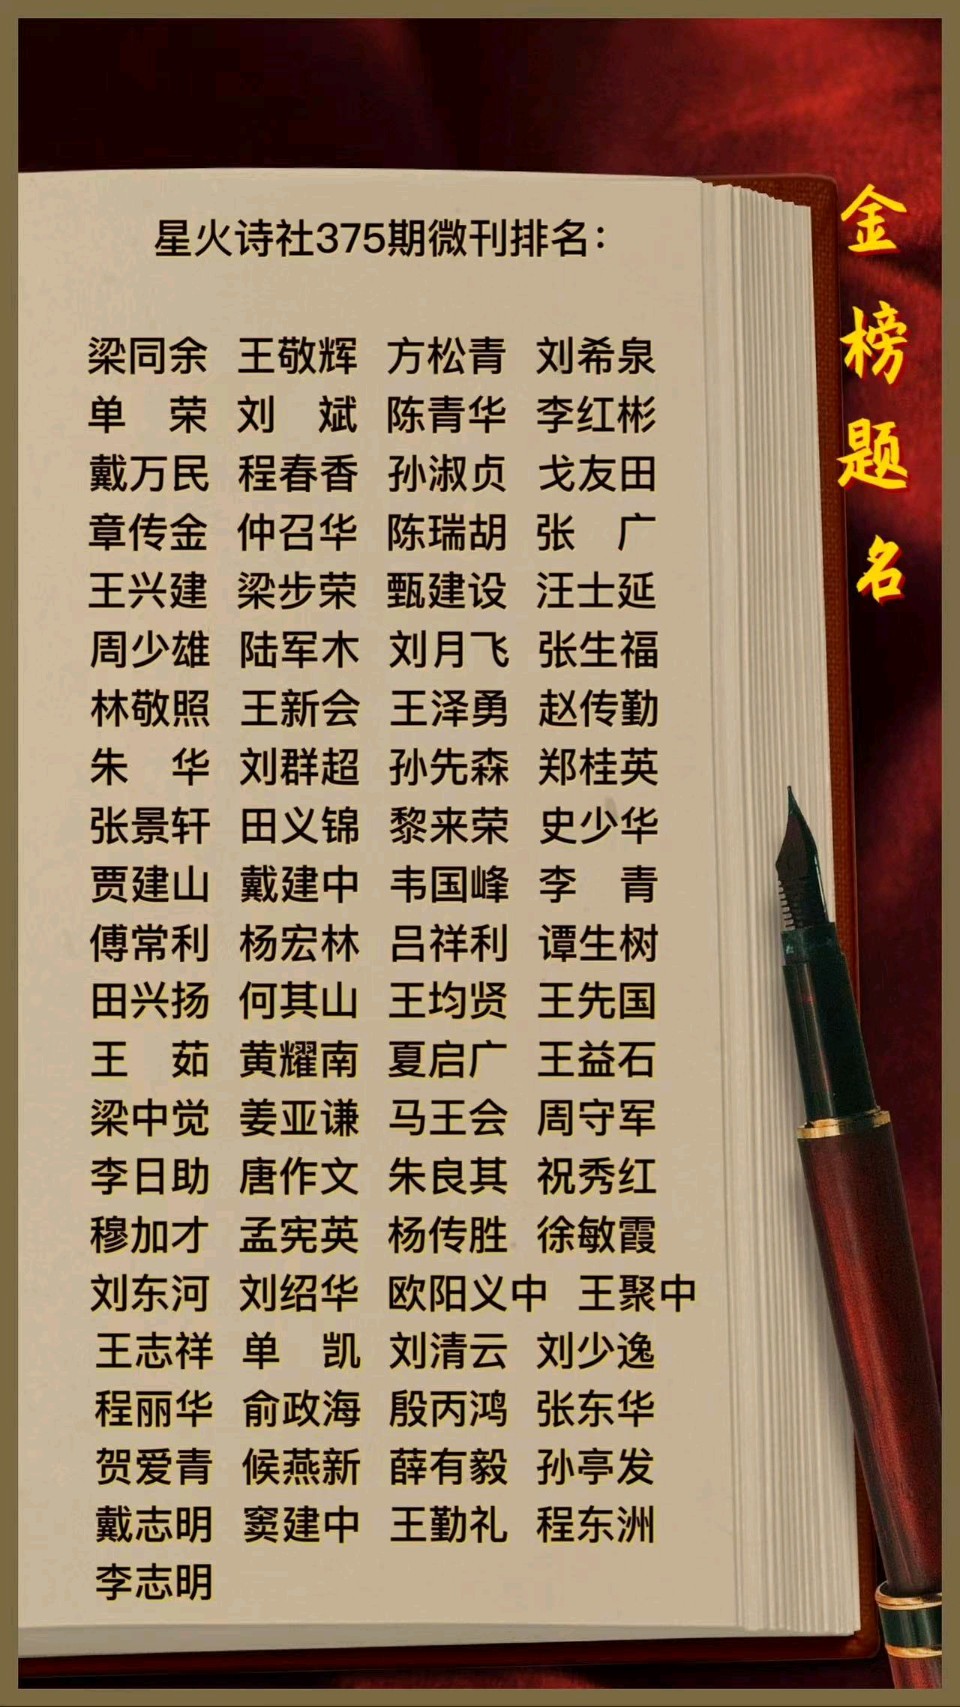 星火诗社375期微刊排名：
梁同余 王敬辉 方松青 刘希泉
单　荣 刘　斌 陈青华 李红彬
戴万民 程春香 孙淑贞 戈友田
章传金 仲召华 陈瑞胡 张　广
王兴建 梁步荣 甄建设 汪士延
周少雄 陆军木 刘月飞 张生福
林敬照 王新会 王泽勇 赵传勤
朱　华 刘群超 孙先森 郑桂英
张景轩 田义锦 黎来荣 史少华
贾建山 戴建中 韦国峰 李　青
傅常利 杨宏林 吕祥利 谭生树
田兴扬 何其山 王均贤 王先国
王　茹 黄耀南 夏启广 王益石
梁中觉 姜亚谦 马王会 周守军
李日助 唐作文 朱良其 祝秀红
穆加才 孟宪英 杨传胜 徐敏霞
刘东河 刘绍华 欧阳义中 王聚中
王志祥 单　凯 刘清云 刘少逸
程丽华 俞政海 殷丙鸿 张东华
贺爱青 候燕新 薛有毅 孙亭发
戴志明 窦建中 王勤礼 程东洲
李志明
金榜题名